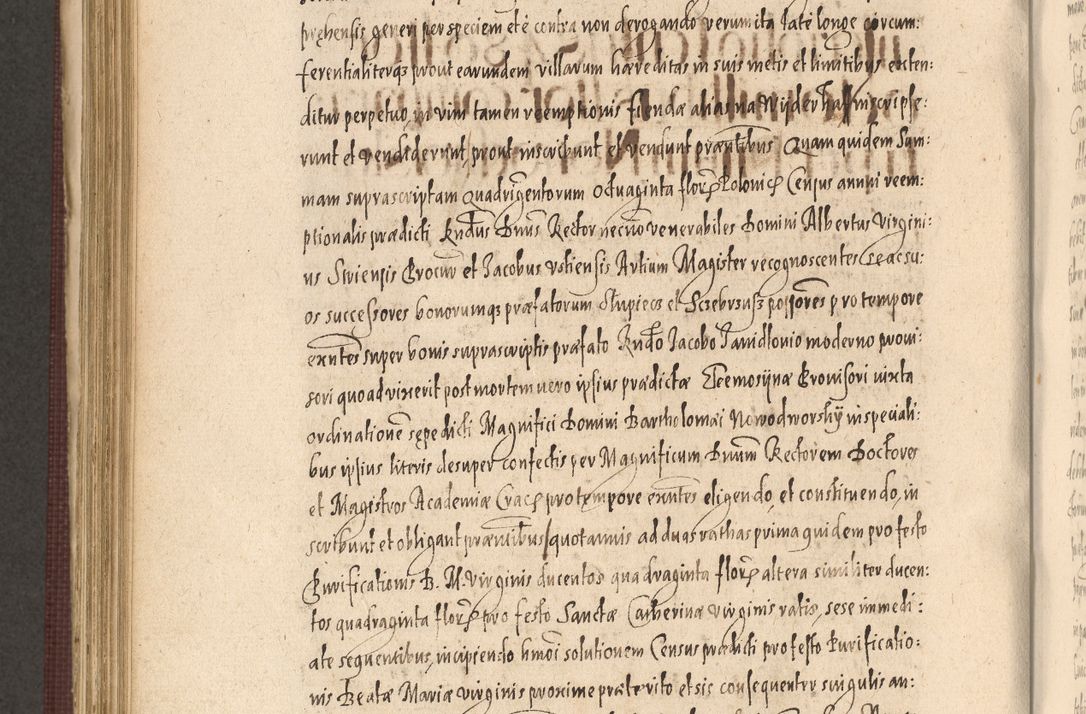 pręhensis generi per speciem et è contra non derogando verum ita latè longe circum:
ferentialiterq3 prout earundem villarum hæreditas in suis metis et limitibus exten:
ditur perpetuo, in vim tamen reemptionis fiendæ alias na Wyderkaff inscripse:
runt et vendiderunt, prout inscribunt et vendunt præntibus Quam quidem Sum:
mam suprascriptam Quadringentorum Octuaginta flor. Polonic. Census annui reem:
ptionalis prædicti Rndus Dnus Rector necno venerabiles Domini Albertus Virgini:
us et Jacobus Ustiensis Artium Magister recognoscentes se ac su:
os successores bonorumq3 præfatorum et possores pro tempore
exntes super bonis suprascriptis præfato Rndo Jacobo Janidlovio moderno provi:
sori quoad vixerit post mortem vero ipsius prædictæ Eleemosynæ Provisori iuxta
ordinatione sępedicti Magnifici Domini Bartholomæi Nowodworskÿ in speciali:
bus ipsius literis desuper confectis per Magnificum Dnum Rectorem Doctores
et Magistros Academiæ Crac. pro tempore exntes eligendo, et constituendo, in
scribunt et obligant præntibus quotannis ad duas rathas prima quidem pro festo
Purificationis B. M. Virginis ducentos quadraginta flor. altera similiter ducen:
tos quadraginta flor. pro festo Sanctæ Catherinæ Virginis ratis, sese immedi:
atè sequentibus, incipiendo hmoi solutionem Census prædicti pro festo Purificatio:
nis Beatæ Mariæ Virginis proxime præterito et sic consequenter singulis an: